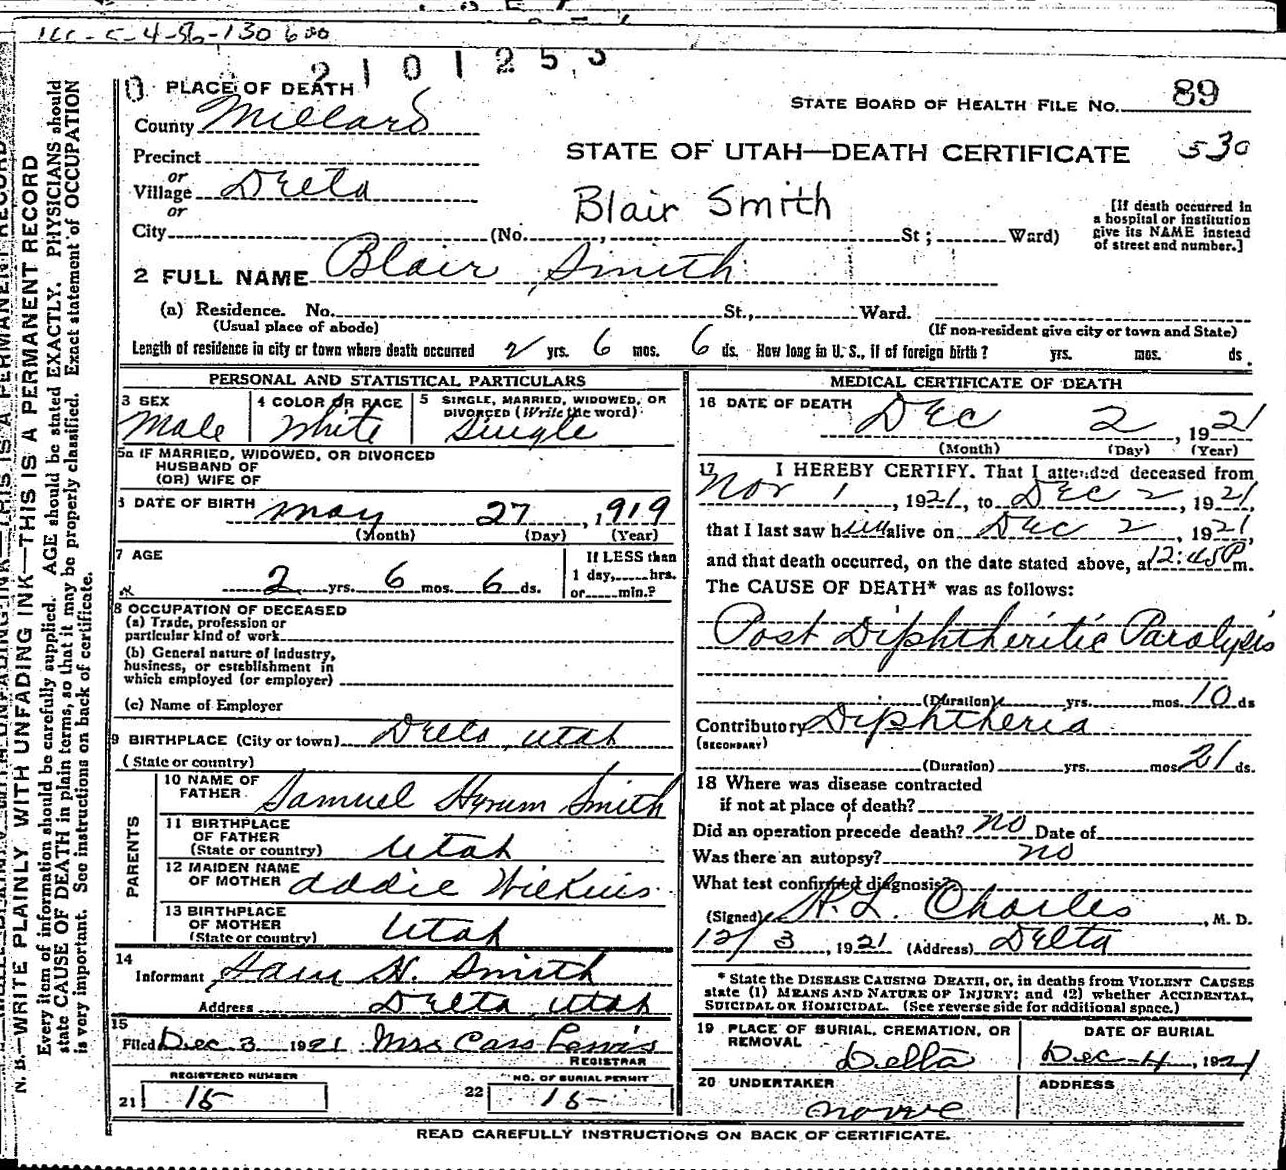 2101253
PLACE OF DEATH
STATE BOARD OF HEALTH FILE No. 89
County Millard
Precinct
STATE OF UTAH—DEATH CERTIFICATE 530
or
Village Delta
or
Blair Smith
[If death occurred in
a hospital or institution
give its NAME instead
of street and number.]
City (No. , St ; Ward)
2 FULL NAME Blair Smith
(a) Residence. No. St., Ward.
(Usual place of abode) (If non-resident give city or town and State)
Length of residence in city or town where death occurred 2 yrs. 6 mos. 6 ds. How long in U. S., if of foreign birth? yrs. mos. ds.
PERSONAL AND STATISTICAL PARTICULARS
3 SEX Male
4 COLOR OR RACE White
5 SINGLE, MARRIED, WIDOWED, OR
DIVORCED (Write the word)
Single
5a IF MARRIED, WIDOWED, OR DIVORCED
HUSBAND OF
(OR) WIFE OF
6 DATE OF BIRTH May 27, 1919
(Month) (Day) (Year)
7 AGE
2 yrs. 6 mos. 6 ds.
If LESS than
1 day, hrs.
or min.?
8 OCCUPATION OF DECEASED
(a) Trade, profession or
particular kind of work
(b) General nature of industry,
business, or establishment in
which employed (or employer)
(c) Name of Employer
9 BIRTHPLACE (City or town) Delta, Utah
(State or country)
PARENTS
10 NAME OF
FATHER Samuel Hyrum Smith
11 BIRTHPLACE
OF FATHER
(State or country) Utah
12 MAIDEN NAME
OF MOTHER Addie Wilkins
13 BIRTHPLACE
OF MOTHER
(State or country) Utah
14
Informant Sam H. Smith
Address Delta, Utah
15
Filed Dec 3 1921 Mrs Cass Lewis
REGISTRAR
REGISTERED NUMBER
21 15
NO. OF BURIAL PERMIT
22 15
MEDICAL CERTIFICATE OF DEATH
16 DATE OF DEATH Dec 2, 1921
(Month) (Day) (Year)
17 I HEREBY CERTIFY. That I attended deceased from
Nov 1, 1921, to Dec 2, 1921,
that I last saw him alive on Dec 2, 1921,
and that death occurred, on the date stated above, at 12:45 P m.
The CAUSE OF DEATH* was as follows:
Post Diphtheritic Paralysis
(Duration) yrs. mos. 10 ds
Contributory Diphtheria
(SECONDARY)
(Duration) yrs. mos. 21 ds.
18 Where was disease contracted
if not at place of death?
Did an operation precede death? no Date of
Was there an autopsy? no
What test confirmed diagnosis?
(Signed) H. L. Charles, M. D.
12/3, 1921 (Address) Delta
* State the DISEASE CAUSING DEATH, or, in deaths from VIOLENT CAUSES
state (1) MEANS AND NATURE OF INJURY; and (2) whether ACCIDENTAL,
SUICIDAL OR HOMICIDAL. (See reverse side for additional space.)
19 PLACE OF BURIAL, CREMATION, OR
REMOVAL Delta
DATE OF BURIAL
Dec 4, 1921
20 UNDERTAKER
none
ADDRESS
READ CAREFULLY INSTRUCTIONS ON BACK OF CERTIFICATE.
N. B.—WRITE PLAINLY WITH UNFADING INK—THIS IS A PERMANENT RECORD
Every item of information should be carefully supplied. AGE should be stated EXACTLY. PHYSICIANS should
state CAUSE OF DEATH in plain terms, so that it may be properly classified. Exact statement of OCCUPATION
is very important. See instructions on back of certificate.